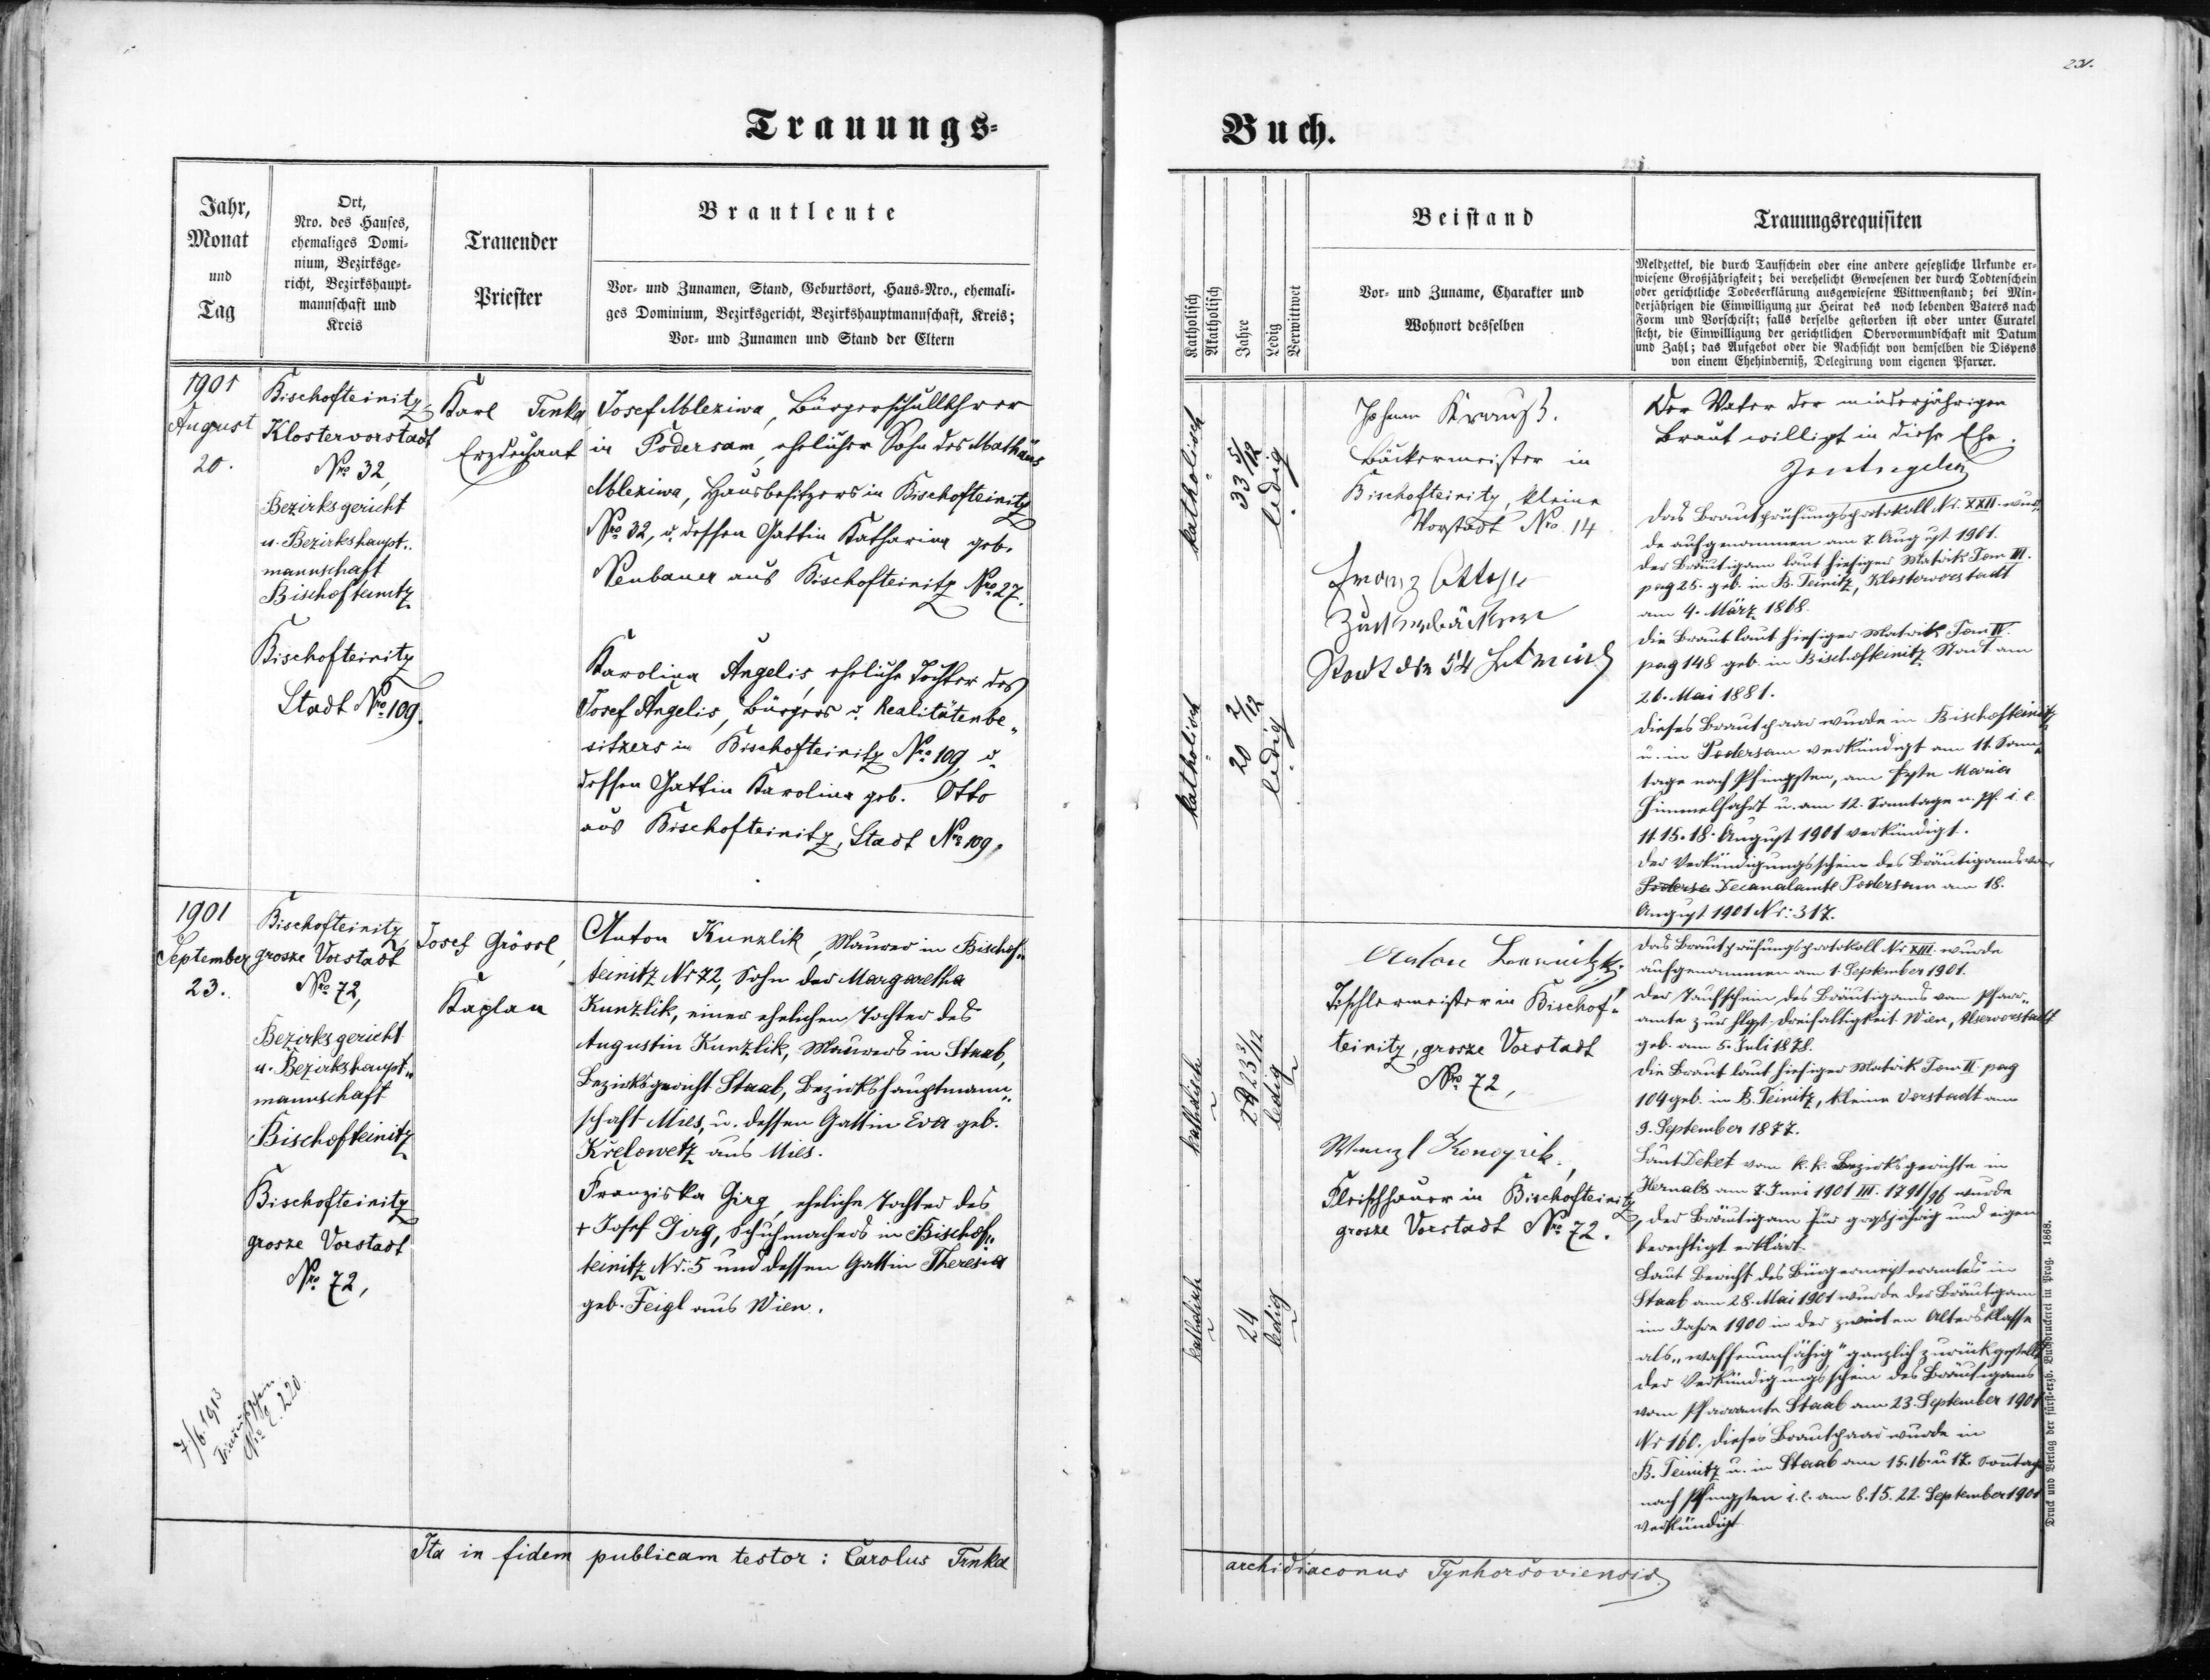 231.
Trauungs=
Buch.
Jahr,
Monat
und
Tag
Ort,
Nro. des Hauses,
ehemaliges Domi-
nium, Bezirksge-
richt, Bezirkshaupt-
mannschaft und
Kreis
Trauender
Priester
Brautleute
Vor- und Zunamen, Stand, Geburtsort, Haus-Nro., ehemali-
ges Dominium, Bezirksgericht, Bezirkshauptmannschaft, Kreis;
Vor- und Zunamen und Stand der Eltern
Katholisch
Akatholisch
Jahre
Ledig
Verwittwet
Beistand
Vor- und Zuname, Charakter und
Wohnort desselben
Trauungsrequisiten
Meldzettel, die durch Taufschein oder eine andere gesetzliche Urkunde er-
wiesene Großjährigkeit; bei verehelicht Gewesenen der durch Todtenschein
oder gerichtliche Todeserklärung ausgewiesene Wittwenstand; bei Min-
derjährigen die Einwilligung zur Heirat des noch lebenden Vaters nach
Form und Vorschrift; falls derselbe gestorben ist oder unter Curatel
steht, die Einwilligung der gerichtlichen Obervormundschaft mit Datum
und Zahl; das Aufgebot oder die Nachsicht von demselben die Dispens
von einem Ehehinderniß, Delegirung vom eigenen Pfarrer.
1901
August
20.
Bischofteinitz
Klostervorstadt
Nro 32,
Bezirksgericht
u. Bezirkshaupt-
mannschaft
Bischofteinitz
Bischofteinitz
Stadt Nro 109.
Karl Trnka
Erzdechant
Josef Mleziwa, Bürgerschullehrer
in Podersam, ehelicher Sohn des Mathäus
Mleziwa, Hausbesitzers in Bischofteinitz
Nro 32, u. dessen Gattin Katharina geb.
Neubauer aus Bischofteinitz Nro 27.
Karolina Angelis, eheliche Tochter des
Josef Angelis, Bürgers u. Realitätenbe-
sitzers in Bischofteinitz Nro 109, u.
dessen Gattin Karolina geb. Otto
aus Bischofteinitz, Stadt Nro 109.
katholisch
33 5/12
ledig
katholisch
20 2/12
ledig
Johann Krauß.
Bäckermeister in
Bischofteinitz, kleine
Vorstadt Nro. 14
Franz
Zuckerbäcker
Stadt 54
Der Vater der minderjährigen
Braut willigt in diese Ehe.
Das Brautprüfungsprotokoll Nr. XXII. wur-
de aufgenommen am 7. August 1901.
Der Bräutigam laut hiesiger Matrik Tom III.
pag 25. geb. in B. Teinitz, Klostervorstadt
am 4. März 1868.
Die Braut laut hiesiger Matrik Tom IV.
pag 148 geb. in Bischofteinitz Stadt am
26. Mai 1881.
Dieses Brautpaar wurde in Bischofteinitz
u. in Podersam verkündigt am 11. Sonn-
tage nach Pfingsten, am Feste Maria
Himmelfahrt u. am 12. Sonntage n. Pf. i. e.
11. 15. 18. August 1901 verkündigt.
Der Verkündigungsschein des Bräutigams vom
Decanalamte Podersam am 18.
August 1901 Nr: 317.
1901
September
23.
Bischofteinitz,
grosze Vorstadt
Nro 72,
Bezirksgericht
u. Bezirkshaupt-
mannschaft
Bischofteinitz
Bischofteinitz
grosze Vorstadt
Nro 72,
Josef Grössl,
Kaplan
Anton Kunzlik, Maurer in Bischof-
teinitz Nr 72, Sohn der Margaretha
Kunzlik, einer ehelichen Tochter des
Augustin Kunzlik, Maurers in Staab,
Bezirksgericht Staab, Bezirkshauptmann-
schaft Mies, u. dessen Gattin Eva geb.
Křelowetz aus Mies.
Franziska Girg, eheliche Tochter des
+ Josef Girg, Schuhmachers in Bischof-
teinitz Nr. 5 und dessen Gattin Theresia
geb. Feigl aus Wien.
katholisch
23 3/12
ledig
katholisch
24
ledig
Anton
Tischlermeister in Bischof-
teinitz, grosze Vorstadt
Nro 72,
Wenzl Konopik,
Fleischhauer in Bischofteinitz
grosze Vorstadt Nro 72.
Das Brautprüfungsprotokoll Nr XIII. wurde
aufgenommen am 1. September 1901.
Der Taufschein des Bräutigams vom Pfarr-
amte zur hlgst. Dreifaltigkeit Wien, Alservorstadt
geb. am 5. Juli 1878.
Die Braut laut hiesiger Matrik Tom II pag
104 geb. in B. Teinitz, kleine Vorstadt am
9. September 1877.
Laut Dekret vom k. k. Bezirksgerichte in
Hernals am 7. Juni 1901 III. 1791/96 wurde
der Bräutigam für großjährig und eigen
berechtigt erklärt.
Laut Bericht des Bürgermeisteramtes in
Staab am 28. Mai 1901 wurde der Bräutigam
im Jahre 1900 in der zweiten Altersklasse
als „waffenunfähig" gänzlich zurückgestellt
Der Verkündigungsschein des Bräutigams
vom Pfarramte Staab am 23. September 1901
Nr 160. Dieses Brautpaar wurde in
B. Teinitz u. in Staab am 15. 16. u 17. Sonntage
nach Pfingsten i. e. am 8. 15. 22. September 1901
verkündigt
7/6. 1913
Trauungsschein
Nro E. 220.
Ita in fidem publicam testor: Carolus Trnka
archidiaconus Tynhoršoviensis.
Druck und Verlag der fürst-erzb. Buchdruckerei in Prag. 1868.